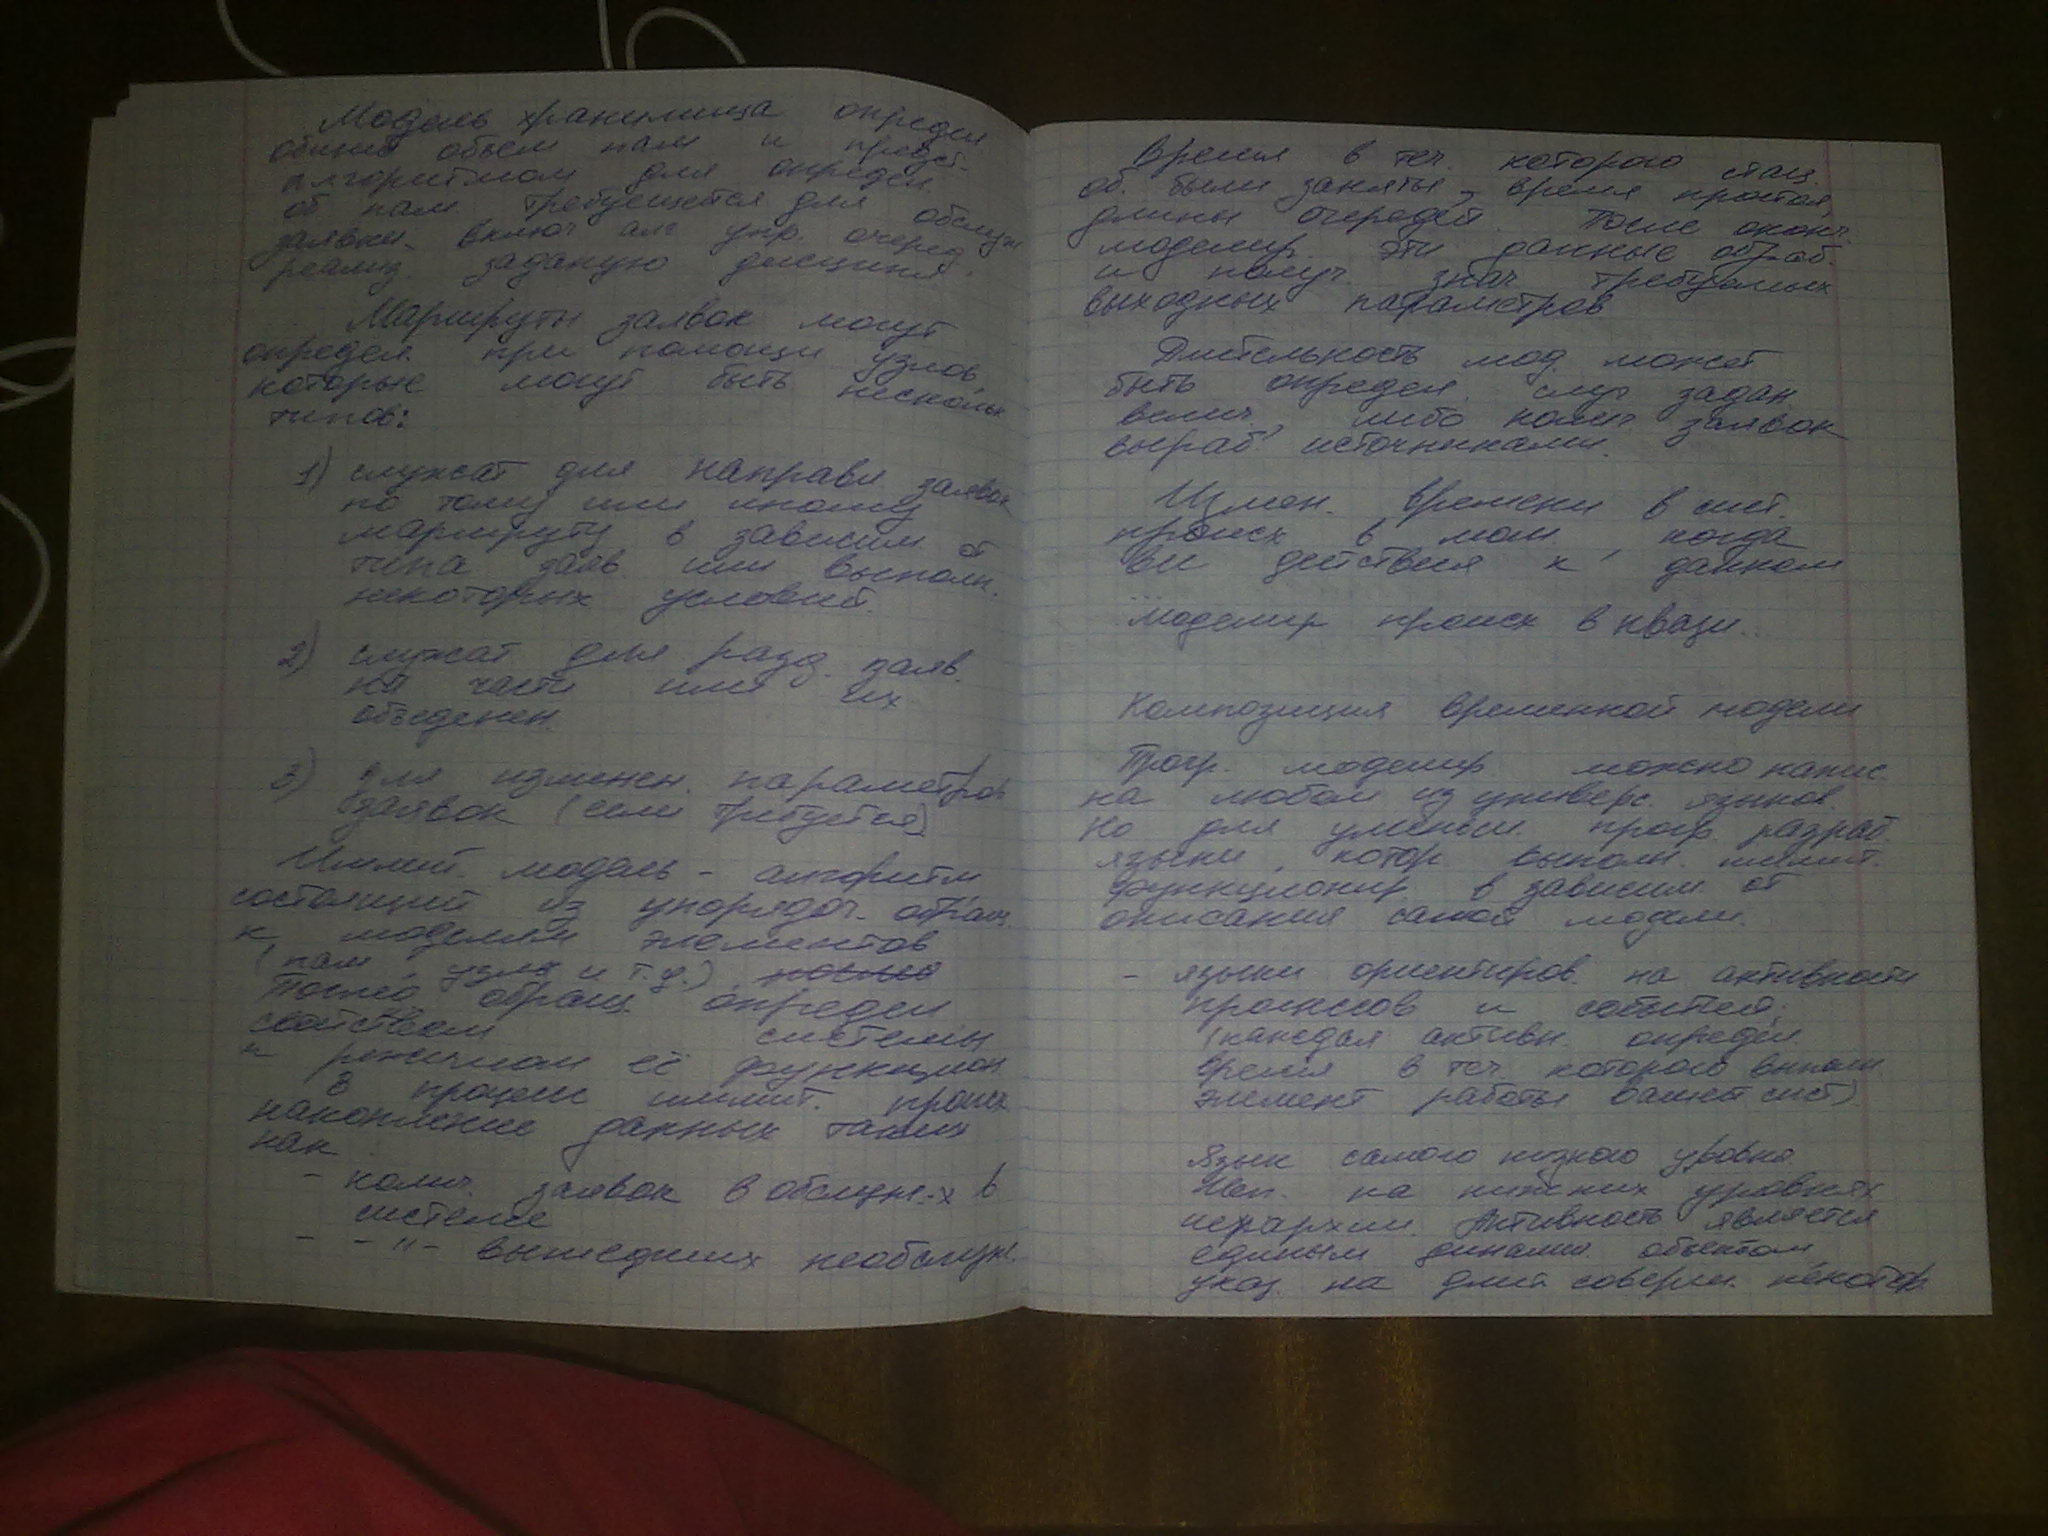 Модель хранилища определ.
общие объем пам и предст.
алгоритмом для определ.
об пам. требующегося для обслуж
заявки. включ алг упр. очеред
реализ. заданую дисципл.
Маршруты заявок могут
определ. при помощи узлов,
которые могут быть нескольк
типов:
1) служат для направл заявок
по тому или иному
маршруту в зависим от
типа заяв. или выполн.
некоторых условий.
2) служат для разд. заяв.
на части или их
объеденен.
3) для изменен. параметров
заявок (если требуется)
Имит. модель - алгоритм
состоящий из упорядоч. обращ.
к моделям элементов
(пам, узлы и т.д.)
обращ. определ
свойствам системы
и режимом её функцион
В процессе имит. происх
накопление данных таких
как
- колич. заявок в обслуж-х в
системе
- -"- вышедших необслуж.
Время в теч. которого стац.
об. были заняты, время простоя,
длины очередей. После оконч.
моделир. эти данные обраб.
и получ. знач требуемых
выходных параметров
Длительность мод. может
быть определ. случ задан
велич, либо колич заявок
выраб. источниками.
Измен. времени в сист.
происх в мом, когда
все действия к данном
...
Моделир происх в квази..
Композиция временной модели
Прогр. моделир. можно напис.
на любом из универс. языков.
Но для уменьш. прогр. разраб.
языки, котор выполн. имит.
функционир в зависим. от
описания самой модели.
- языки ориентиров. на активности
процессов и событий.
(каждая активн. определ.
время в теч. которого выполн.
элемент работы вашей сист)
Язык самого низкого уровня.
Исп. на нижних уровнях
иерархии. Активность является
единым динамич. объектом,
указ. на длит. соверш. некотор.